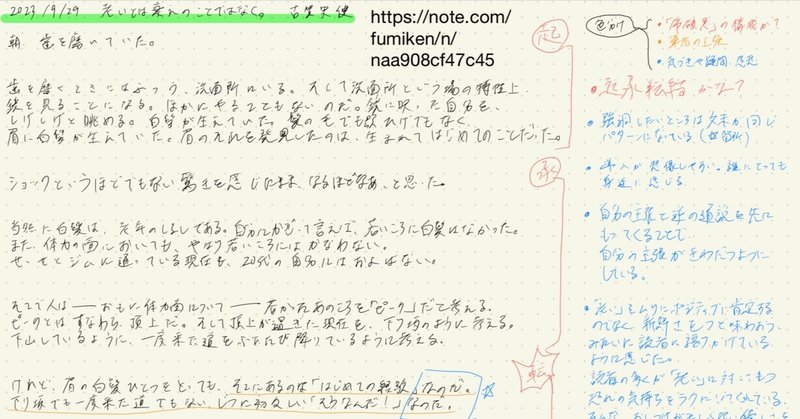 2023/9/29 老いとは衰えのことではなく。 古賀史健
https://note.com/
fumiken/n/
naa908cf47c45
朝、歯を磨いていた。
歯を磨くときにはふつう、洗面所にいる。そして洗面所という場の特性上、
鏡を見ることになる。ほかにやることもないのだ。鏡に映った自分を、
しげしげと眺める。白髪が生えていた。髪の毛でも
でもなく、
眉に白髪が生えていた。眉のそれを発見したのは、生まれてはじめてのことだった。
ショックというほどでもない驚きを感じたまま、なるほどなあ、と思った。
当然に白髪は、老年のしるしである。自分にかぎって言えば、若いころに白髪はなかった。
また、体力の面においても、やはり若いころにはかなわない。
せっせとジムに通っている現在も、20代の自分にはおよばない。
そこで人は——おもに体力面について——若かったあのころを「ピーク」だと考える。
ピークとはすなわち、頂上だ。そして頂上が過ぎた現在を、下り坂のように考える。
下山しているように、一度来た道をふたたび降りているように考える。
けれど、眉の白髪ひとつをとっても、そこにあるのは「はじめての経験」なのだ。
下り坂でも一度来た道でもない、じつに初々しい「そうなんだ!」なのだ。
起
承
転
色分け
・「序破急」の構成が?
・筆者の主張
・気づきや疑問、感想
・起承転結かな?
・強調したいところは文末が同じ
パターンになっている
・導入が想像しやすい。誰にとっても
身近に感じる。
・自分の主張と逆の通説を先に
もってくることで、
自分の主張がきわだつように
している。
・「老い」をムリにポジティブに肯定する
のでなく、新鮮さをもって味わおう、
みたいに読者に語りかけている
ように感じた。
読者の多くが「老い」に対してもつ
恐れの気持ちをラクにしてくれている。